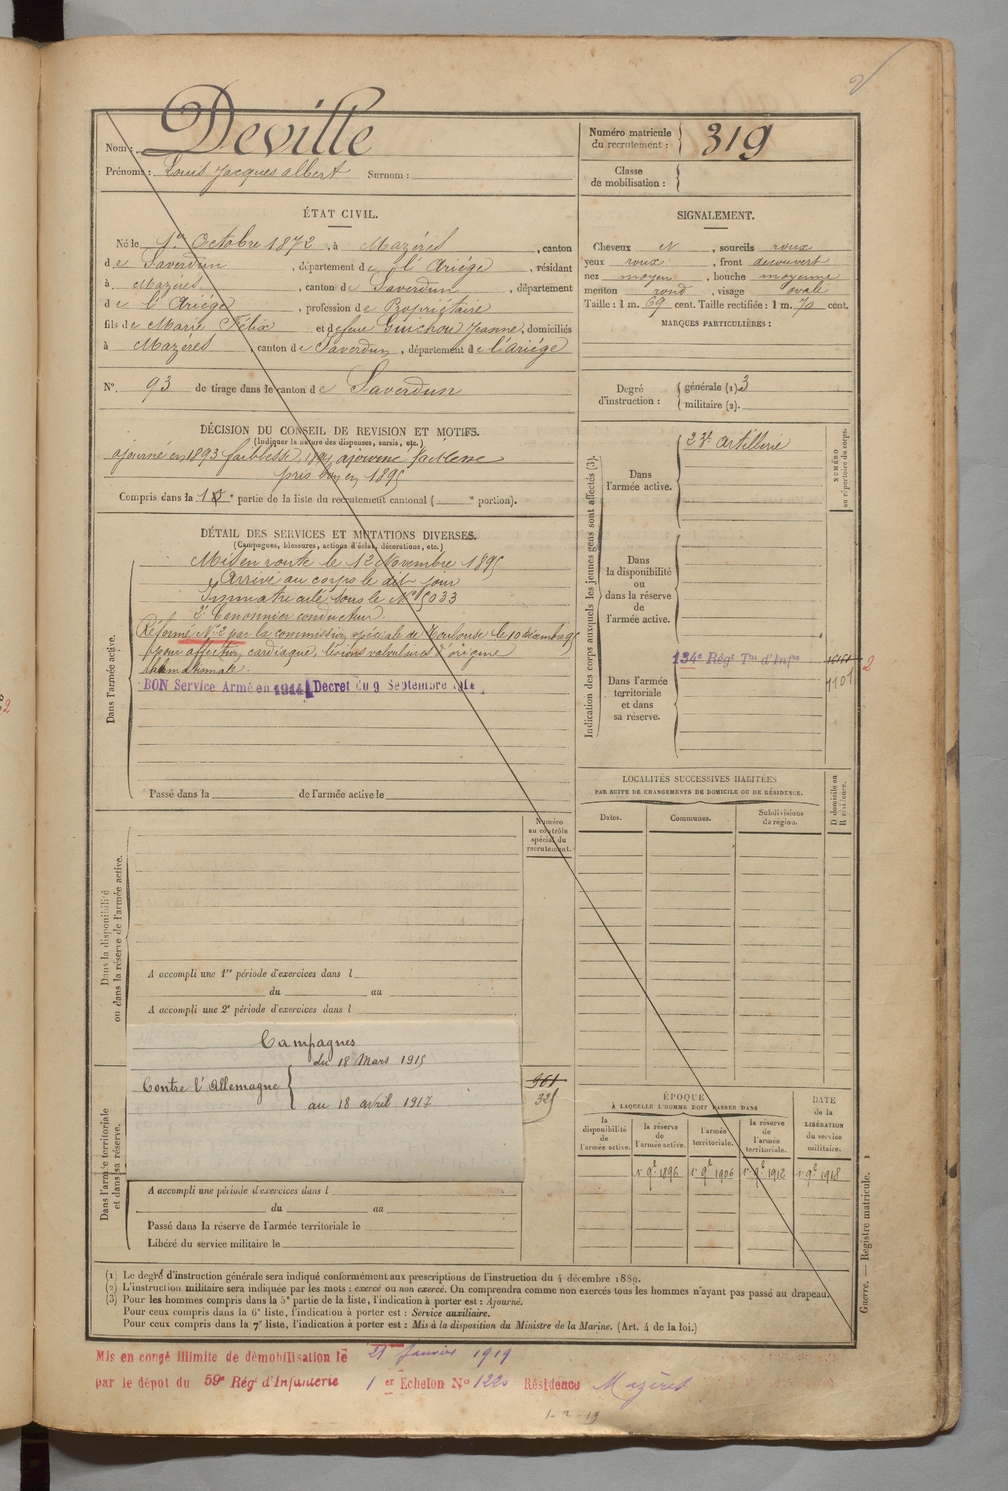 2
Nom : Deville
Prénoms : Louis Jacques albert Surnom :
Numéro matricule du recrutement : 319
Classe de mobilisation :
ÉTAT CIVIL.
Né le 1er Octobre 1872, à Mazères, canton
de Saverdun, département de l'Ariége, résidant
à Mazères, canton de Saverdun, département
de l'Ariége, profession de Propriétaire
fils de Marie Félix et de feue Guichou Jeanne, domiciliés
à Mazères, canton de Saverdun, département de l'ariége
N°. 93 de tirage dans le canton de Saverdun
SIGNALEMENT.
Cheveux N, sourcils roux
yeux roux, front decouvert
nez moyen, bouche moyenne
menton rond, visage ovale
Taille : 1 m. 69 cent. Taille rectifiée : 1 m. 70 cent.
MARQUES PARTICULIÈRES :
Degré d'instruction : générale (1). 3
militaire (2).
DÉCISION DU CONSEIL DE REVISION ET MOTIFS.
(Indiquer la nature des dispenses, sursis, etc.)
ajourné en 1893 faiblesse, 1894 ajourné faiblesse
pris bon en 1895
Compris dans la 1e partie de la liste du recrutement cantonal ( e portion).
DÉTAIL DES SERVICES ET MUTATIONS DIVERSES.
(Campagnes, blessures, actions d'éclat, décorations, etc.)
Dans l'armée active.
Mis en route le 12 Novembre 1895
Arrivé au corps le dit jour
Immatriculé sous le N° 5033
2e Canonnier conducteur.
Réformé N° 2 par la commission spéciale de Toulouse le 10 décembre 95
pour affection cardiaque, lésions valvulaires d'origine
rhumatismale.
BON Service Armé en 1914 Decret du 9 Septembre 1914
Passé dans la de l'armée active le
Indication des corps auxquels les jeunes gens sont affectés (3).
NUMÉRO au répertoire du corps.
Dans l'armée active.
23e artillerie
Dans la disponibilité ou dans la réserve de l'armée active.
Dans l'armée territoriale et dans sa réserve.
134e Régt Tal d'Infie
1101
2
LOCALITÉS SUCCESSIVES HABITÉES
PAR SUITE DE CHANGEMENTS DE DOMICILE OU DE RÉSIDENCE.
Dates.
Communes.
Subdivisions de région.
D domicile ou R résidence.
Numéro au contrôle spécial du recrutement.
Dans la disponibilité ou dans la réserve de l'armée active.
A accompli une 1re période d'exercices dans l
du au
A accompli une 2e période d'exercices dans l
Campagnes
Contre l'Allemagne
du 18 Mars 1915
au 18 avril 1917
961
325
Dans l'armée territoriale et dans sa réserve.
A accompli une période d'exercices dans l
du au
Passé dans la réserve de l'armée territoriale le
Libéré du service militaire le
ÉPOQUE
À LAQUELLE L'HOMME DOIT PASSER DANS
la disponibilité de l'armée active.
la réserve de l'armée active.
l'armée territoriale.
la réserve de l'armée territoriale.
DATE de la LIBÉRATION du service militaire.
1896
1906
1912
1918
(1) Le degré d'instruction générale sera indiqué conformément aux prescriptions de l'instruction du 4 décembre 1889.
(2) L'instruction militaire sera indiquée par les mots : exercé ou non exercé. On comprendra comme non exercés tous les hommes n'ayant pas passé au drapeau.
(3) Pour les hommes compris dans la 5e partie de la liste, l'indication à porter est : Ajourné.
Pour ceux compris dans la 6e liste, l'indication à porter est : Service auxiliaire.
Pour ceux compris dans la 7e liste, l'indication à porter est : Mis à la disposition du Ministre de la Marine. (Art. 4 de la loi.)
Guerre. — Registre matricule.
Mis en congé illimité de démobilisation le 21 Janvier 1919
par le dépot du 59e Régt d'Infanterie 1er Echelon N° 1220 Résidence Mazères
1-2-19